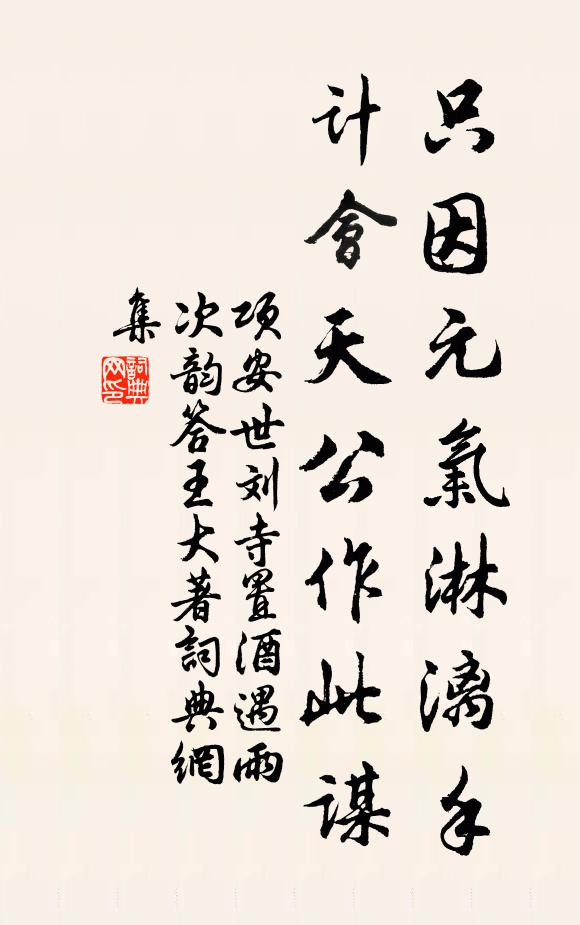 只因元氣淋漓手
計會天公作此謀
项安世刘寺置酒遇雨
次韵答王大著詞典網
集
詞典
网印